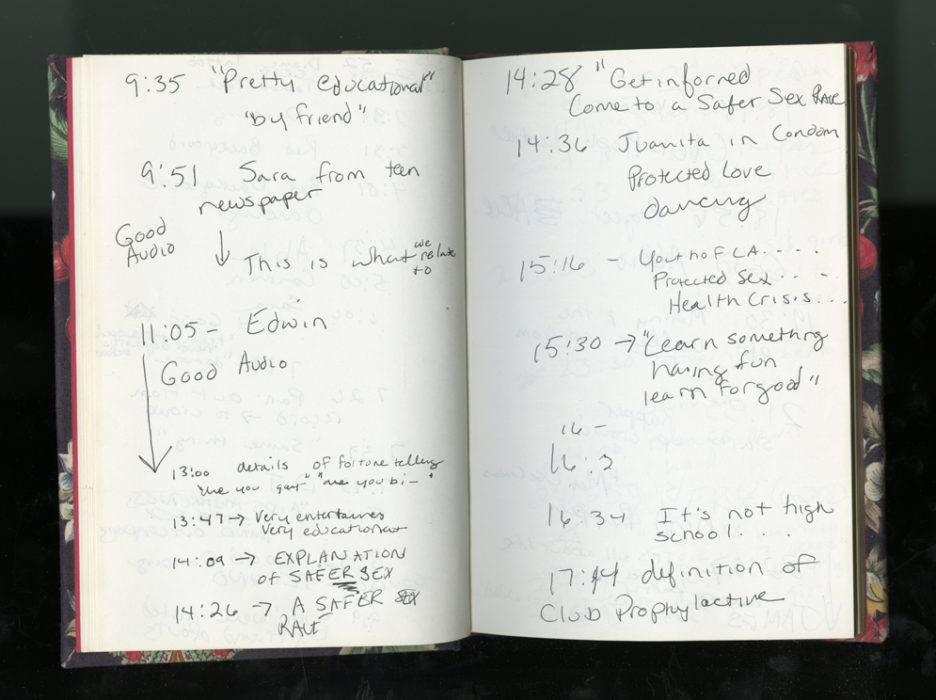 9:35 "Pretty Educational"
"by friend"
9:51 Sara from teen
newspaper
Good
Audio
↓ This is what we relate
to
11:05 - Edwin
Good Audio
13:00 details of fortune telling
"are you gay" "are you bi-"
13:47 → Very entertaines
Very educational
14:09 → EXPLANATION
of SAFER SEX
14:26 → A SAFER SEX
RAVE
14:28 "Get informed
Come to a Safer Sex RAVE
14:36 Juanita in Condom
Protected Love
dancing
15:16 - Youth of LA....
Protected Sex...
Health Crisis...
15:30 → "Learn something
having fun
learn for good"
16 -
16:2
16:34 It's not high
school....
17:14 definition of
Club Prophylactive